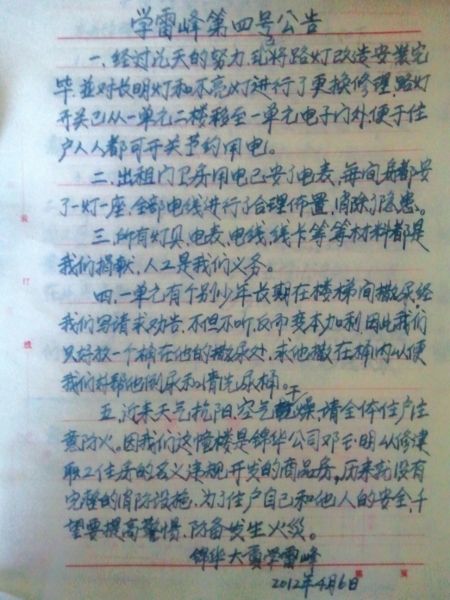 学雷峰第四号公告
一、经过几天的努力,已将路灯改造安装完
毕,并对长明灯和不亮灯进行了更换修理,路灯
开关已从一单元二楼移至一单元电子门外便于住
户人人都可开关节约用电。
二、出租门卫房用电已安了电表,每间房都安
了一灯一座,全部电线进行了合理佈置,消除了隐患。
三、所有灯具、电表、电线、线卡等等材料都是
我们捐献,人工是我们义务。
四、一单元有个别少年长期在楼梯间撒尿,经
我们写请求劝告,不但不听,反而变本加利,因此我们
只好放一个桶在他的撒尿处,求他撒在桶内以便
我们好帮他倒尿和清洗尿桶。
五、近来天气抗阳,空气干燥,请全体住户注
意防火。因我们这幢楼是锦华公司邓玉明从修建
职工住房的名义违规开发的商品房,历来就没有
完整的消防设施,为了住户自己和他人的安全,千
望要提高警惕,防备发生火災。
锦华大厦学雷峰
2012年4月6日